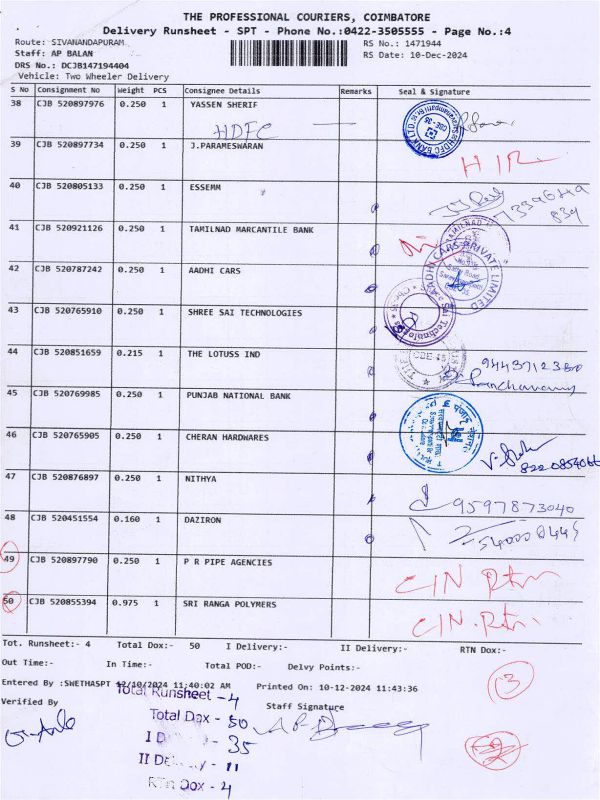 THE PROFESSIONAL COURIERS, COIMBATORE
Delivery Runsheet - SPT - Phone No.:0422-3505555 - Page No.:4
Route: SIVANANDAPURAM
RS No.: 1471944
Staff: AP BALAN
RS Date: 10-Dec-2024
DRS No.: DCJB147194404
Vehicle: Two Wheeler Delivery
S No Consignment No Weight PCS Consignee Details Remarks Seal & Signature
38 CJB 520897976 0.250 1 YASSEN SHERIF
HDFC
39 CJB 520897734 0.250 1 J.PARAMESWARAN
40 CJB 520805133 0.250 1 ESSEMM
41 CJB 520921126 0.250 1 TAMILNAD MARCANTILE BANK
42 CJB 520787242 0.250 1 AADHI CARS
AADHI CARS PRIVATE LIMITED
43 CJB 520765910 0.250 1 SHREE SAI TECHNOLOGIES
44 CJB 520851659 0.215 1 THE LOTUSS IND
9443712380
45 CJB 520769985 0.250 1 PUNJAB NATIONAL BANK
46 CJB 520765905 0.250 1 CHERAN HARDWARES
8220854066
47 CJB 520876897 0.250 1 NITHYA
9597873040
48 CJB 520451554 0.160 1 DAZIRON
49 CJB 520897790 0.250 1 P R PIPE AGENCIES
CIN Rtn
50 CJB 520855394 0.975 1 SRI RANGA POLYMERS
CIN. Rtn
Tot. Runsheet:- 4 Total Dox:- 50 I Delivery:- II Delivery:- RTN Dox:-
Out Time:- In Time:- Total POD:- Delvy Points:-
Entered By :SWETHASPT 12/10/2024 11:40:02 AM Printed On: 10-12-2024 11:43:36
3
Verified By
Staff Signature
Total Runsheet - 4
Total Dox - 50
35
11
4